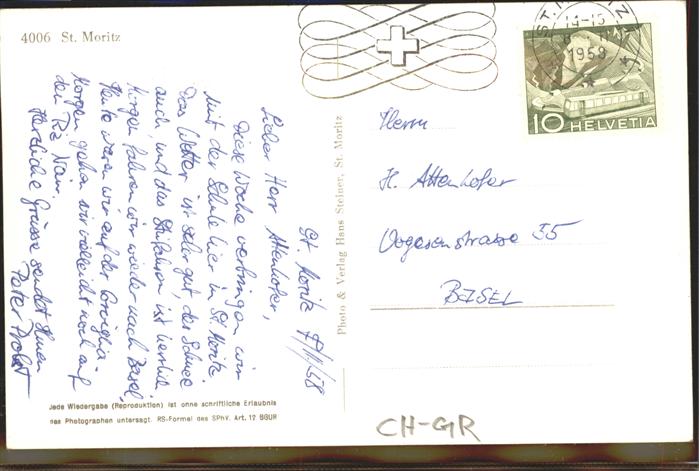 4006 St. Moritz
St. Moritz
Lieber Herr Attenhofer,
Diese Woche verbringen wir
mit der Schule hier in St. Moritz.
Das Wetter ist sehr gut, der Schnee
auch, und das Skifahren ist herrlich.
Morgen fahren wir wieder nach Basel,
Heute waren wir auf der Corviglia
Morgen gehen wir vielleicht noch auf
den Piz Nair.
Herzliche Grüsse sendet Ihnen
Peter
Jede Wiedergabe (Reproduktion) ist ohne schriftliche Erlaubnis
des Photographen untersagt. RS-Formel des SPhV. Art. 12 BGUR
Photo & Verlag Hans Steiner, St. Moritz
14-15
1958
10 HELVETIA
Herrn
H. Attenhofer
Vogesenstrasse 35
BASEL
CH-GR